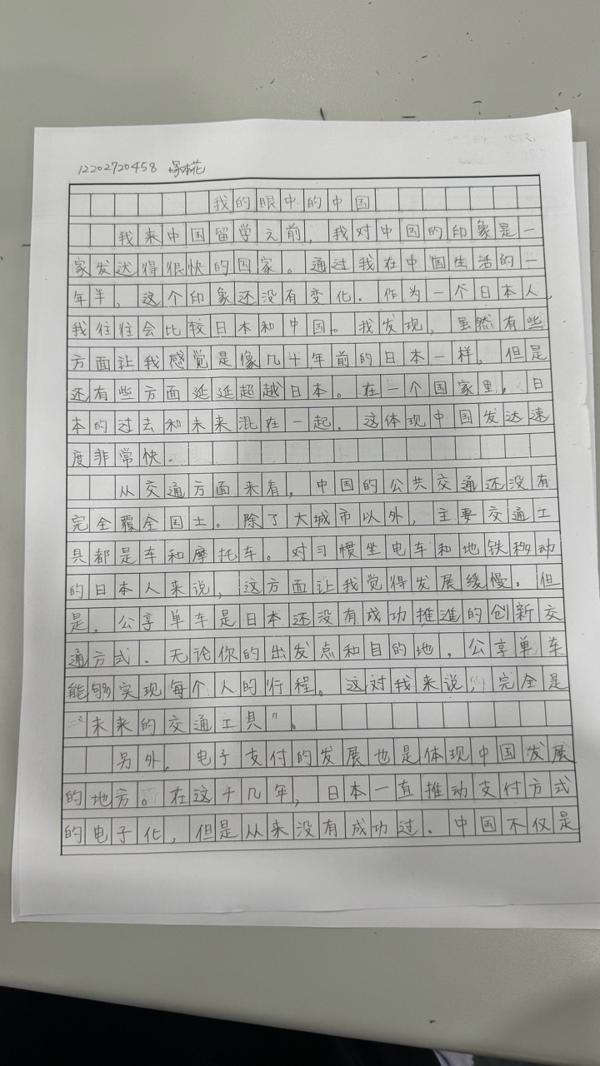 12202720458
我的眼中的中国
我来中国留学之前，我对中国的印象是一
家发达得很快的国家。通过我在中国生活的一
年半，这个印象还没有变化．作为一个日本人，
我往往会比较日本和中国。我发现，虽然有些
方面让我感觉是像几十年前的日本一样。但是
还有些方面延延超越日本。在一个国家里，日
本的过去和未来混在一起．这体现中国发达速
度非常快．
从交通方面来看，中国的公共交通还没有
完全覆全国土。除了大城市以外，主要交通工
具都是车和摩托车。对习惯坐电车和地铁移动
的日本人来说，这方面让我觉得发展缓慢。但
是，公享单车是日本还没有成功推進的创新交
通方式．无论你的出发点和目的地，公享单车
能够实现每个人的行程。这对我来说，完全是
“未来的交通工具”。
另外，电子支付的发展也是体现中国发展
的地方。在这十几年，日本一直推动支付方式
的电子化，但是从来没有成功过．中国不仅是